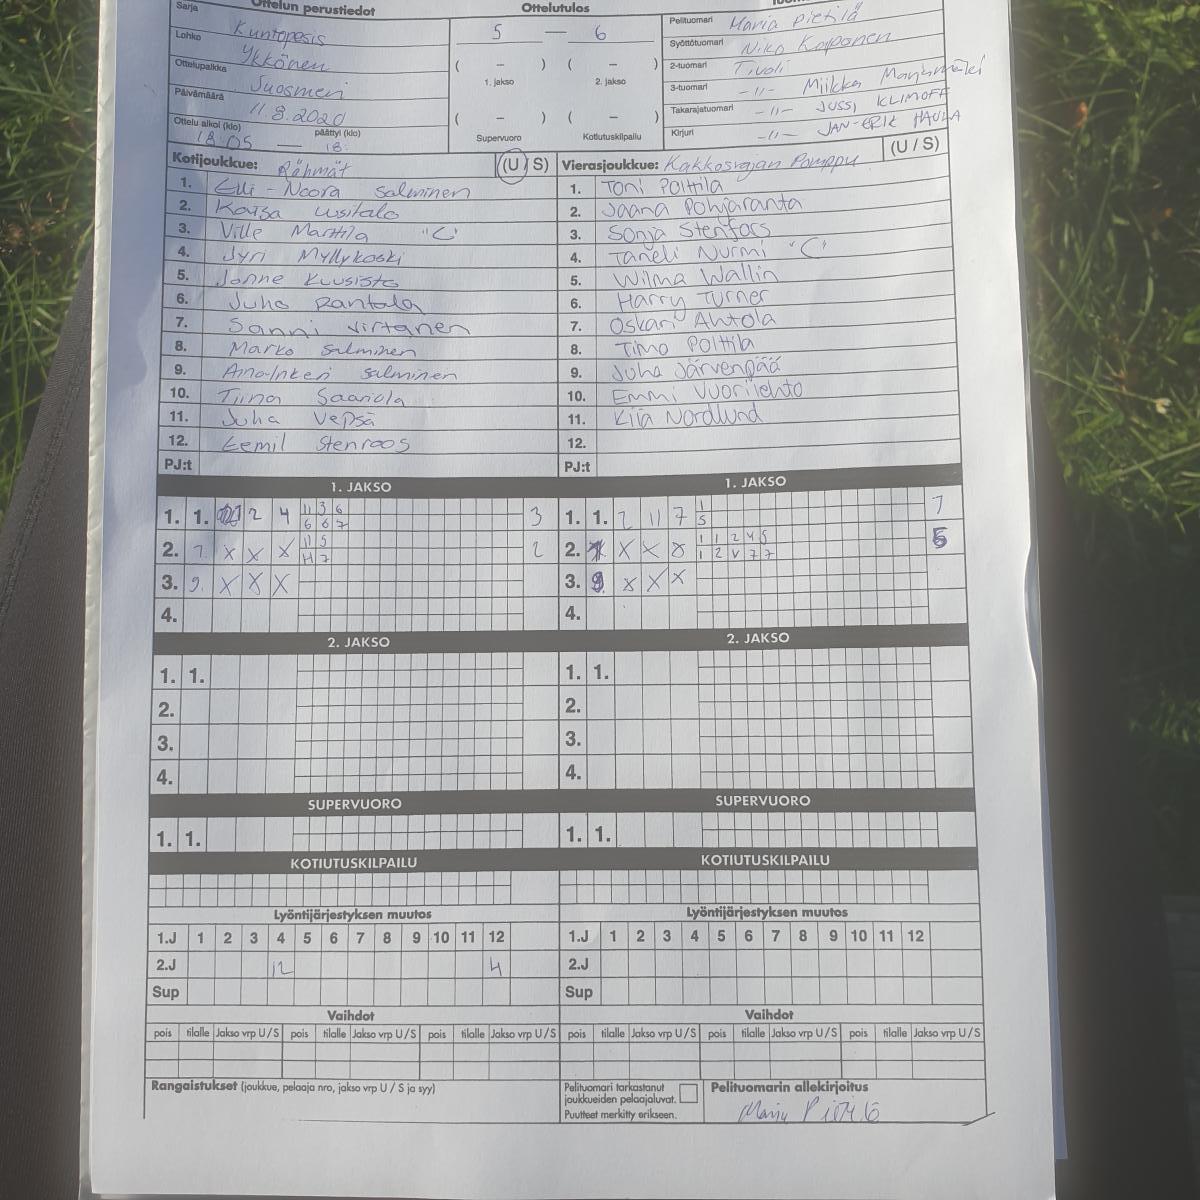 Ottelun perustiedot
Ottelutulos
Sarja Kuntopesis
Lohko Ykkönen
Ottelupaikka Suosmeri
Päivämäärä 11.8.2020
Ottelu alkoi (klo) 18.05 — päättyi (klo) 18:
5 — 6
( – ) ( – )
1. jakso 2. jakso
( – ) ( – )
Supervuoro Kotiutuskilpailu
Pelituomari
Syöttötuomari Niko
2-tuomari Tivoli
3-tuomari -11- Miikka
Takarajatuomari -11- JUSSI KLIMOFF
Kirjuri -11- JAN-ERIK HAULA
Kotijoukkue: Rähmät (U / S)
1. Elli-Noora Salminen
2. Kaisa Uusitalo
3. Ville Marttila "C"
4. Jyri Myllykoski
5. Janne Kuusisto
6. Juho Rantala
7. Sanni Virtanen
8. Marko Salminen
9. Aino-Inkeri Salminen
10. Tiina Saariola
11. Juha Vepsä
12. Eemil Stenroos
PJ:t
Vierasjoukkue: Kakkosrajan Pomppu (U / S)
1. Toni Polttila
2. Jaana Pohjaranta
3. Sonja Stenfors
4. Taneli Nurmi "C"
5. Wilma Wallin
6. Harry Turner
7. Oskari Ahtola
8. Timo Polttila
9. Juha Järvenpää
10. Emmi Vuorilehto
11. Kiia Nordlund
12.
PJ:t
1. JAKSO
1. 1. 2 4 11 3 6 3
6 6 7
2. 7. X X X 11 5 2
H 7
3. 9. X X X
4.
1. JAKSO
1. 1. 2 11 7 1
5
2. X X 8 1 1 2 4 5
1 2 V 7 7
3. 9. X X X
4.
2. JAKSO
1. 1.
2.
3.
4.
2. JAKSO
1. 1.
2.
3.
4.
SUPERVUORO
1. 1.
SUPERVUORO
1. 1.
KOTIUTUSKILPAILU
KOTIUTUSKILPAILU
Lyöntijärjestyksen muutos
1.J 1 2 3 4 5 6 7 8 9 10 11 12
2.J 12 4
Sup
Lyöntijärjestyksen muutos
1.J 1 2 3 4 5 6 7 8 9 10 11 12
2.J
Sup
Vaihdot
pois tilalle Jakso vrp U/S pois tilalle Jakso vrp U/S pois tilalle Jakso vrp U/S
Vaihdot
pois tilalle Jakso vrp U/S pois tilalle Jakso vrp U/S pois tilalle Jakso vrp U/S
Rangaistukset (joukkue, pelaaja nro, jakso vrp U / S ja syy)
Pelituomari tarkastanut
joukkueiden pelaajaluvat.
Puutteet merkitty erikseen.
Pelituomarin allekirjoitus